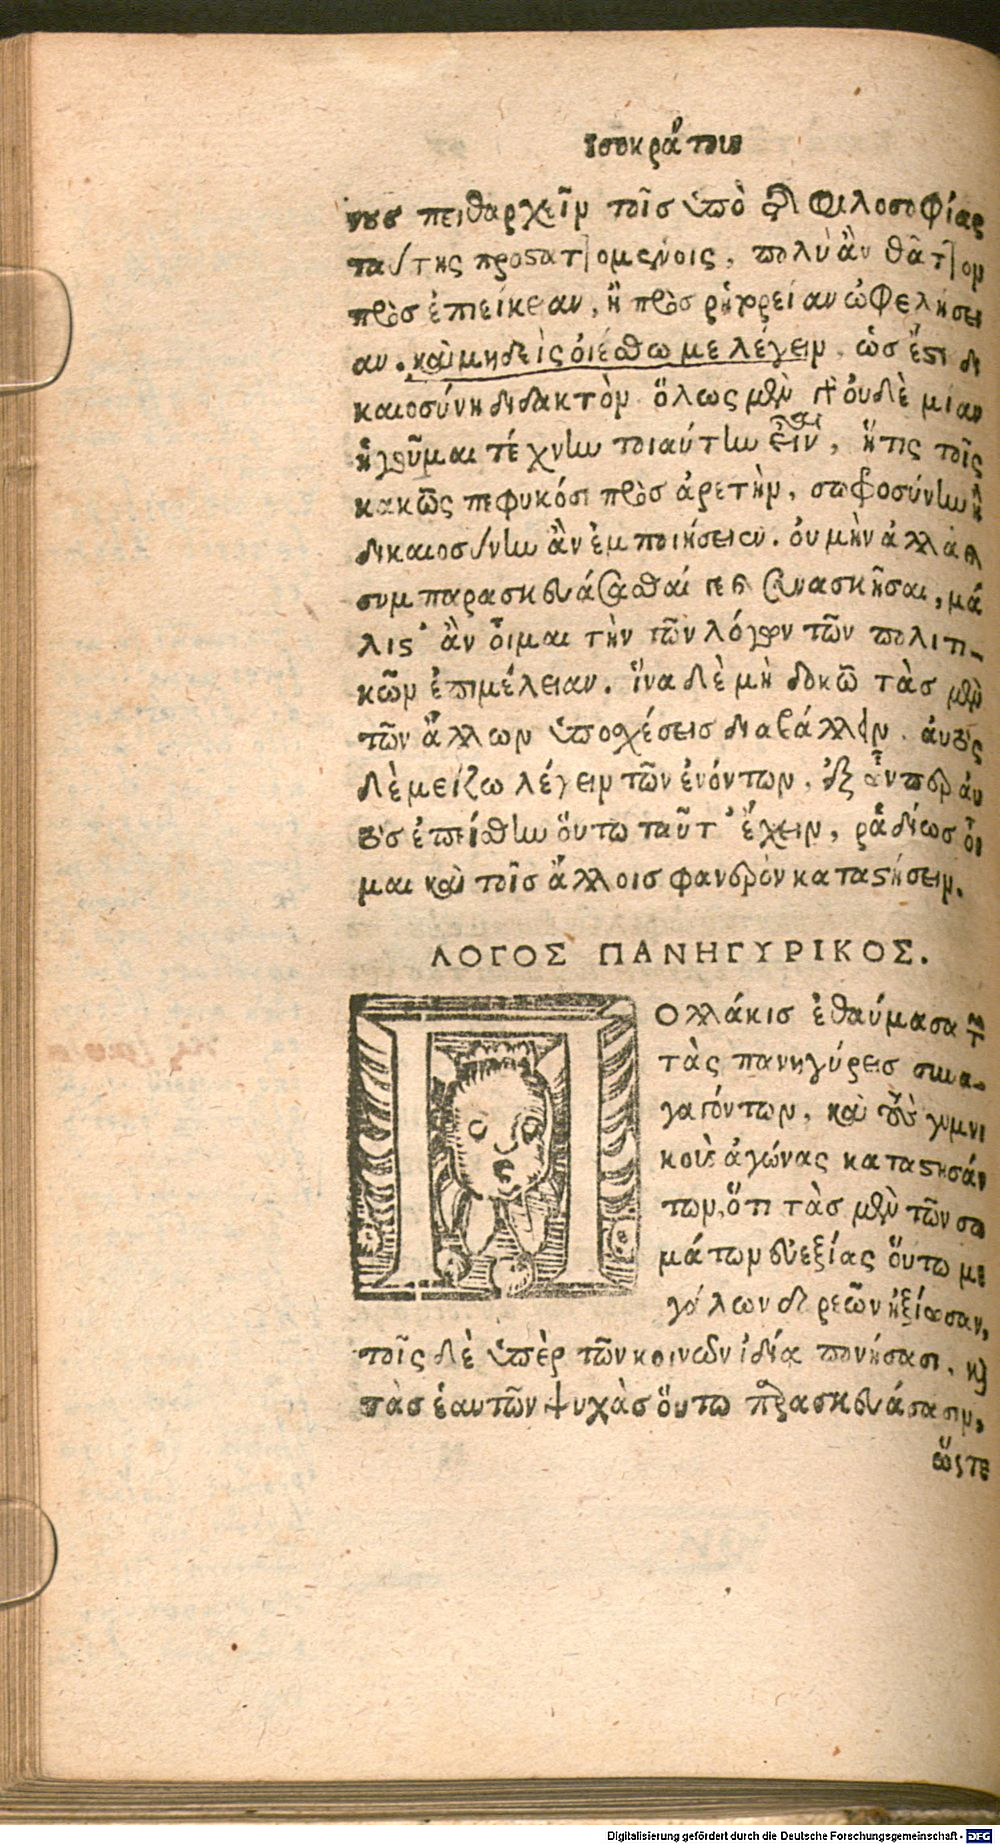 Ισοκράτους
νους πειθαρχεῖν τοῖς ὑπὸ τῆς φιλοσοφίας
ταύτης προσταττομένοις, πολὺ ἂν θᾶττον
πρὸς ἐπιείκειαν, ἢ πρὸς ῥητορείαν ὠφελήσει
αν. καὶ μηδεὶς οἰέσθω με λέγειν, ὡς ἔστι δι
καιοσύνη διδακτὸν. ὅλως μὲν γὰρ οὐδὲ μίαν
ἡγοῦμαι τέχνην τοιαύτην εἶναι, ἥτις τοῖς
κακῶς πεφυκόσι πρὸς ἀρετὴν, σωφροσύνην ἢ
δικαιοσύνην ἂν ἐμποιήσειεν. οὐ μὴν ἀλλὰ
συμπαρασκευάσασθαί γε καὶ συνασκῆσαι, μά
λιστ᾽ ἂν οἶμαι τὴν τῶν λόγων τῶν πολιτι-
κῶν ἐπιμέλειαν. ἵνα δὲ μὴ δοκῶ τὰς μὲν
τῶν ἄλλων ὑποσχέσεις διαβάλλειν. αὐτὸς
δὲ μείζω λέγειν τῶν ἐνόντων, ἐξ ὧνπερ αὐ
τὸς ἐπείσθην οὕτω ταῦτ᾽ ἔχειν, ῥᾳδίως οἶ
μαι καὶ τοῖς ἄλλοις φανερὸν καταστήσειν.
ΛΟΓΟΣ ΠΑΝΗΓΥΡΙΚΟΣ.
Πολλάκις ἐθαύμασα τῶν
τὰς πανηγύρεις συνα-
γαγόντων, καὶ τοὺς γυμνι
κοὺς ἀγώνας καταστησάν
των, ὅτι τὰς μὲν τῶν σω
μάτων εὐεξίας οὕτω με
γάλων δωρεῶν ἠξίωσαν,
τοῖς δὲ ὑπὲρ τῶν κοινῶν ἰδίᾳ πονήσασι, καὶ
τὰς ἑαυτῶν ψυχὰς οὕτω παρασκευάσασιν,
ὥστε
Digitalisierung gefördert durch die Deutsche Forschungsgemeinschaft - DFG